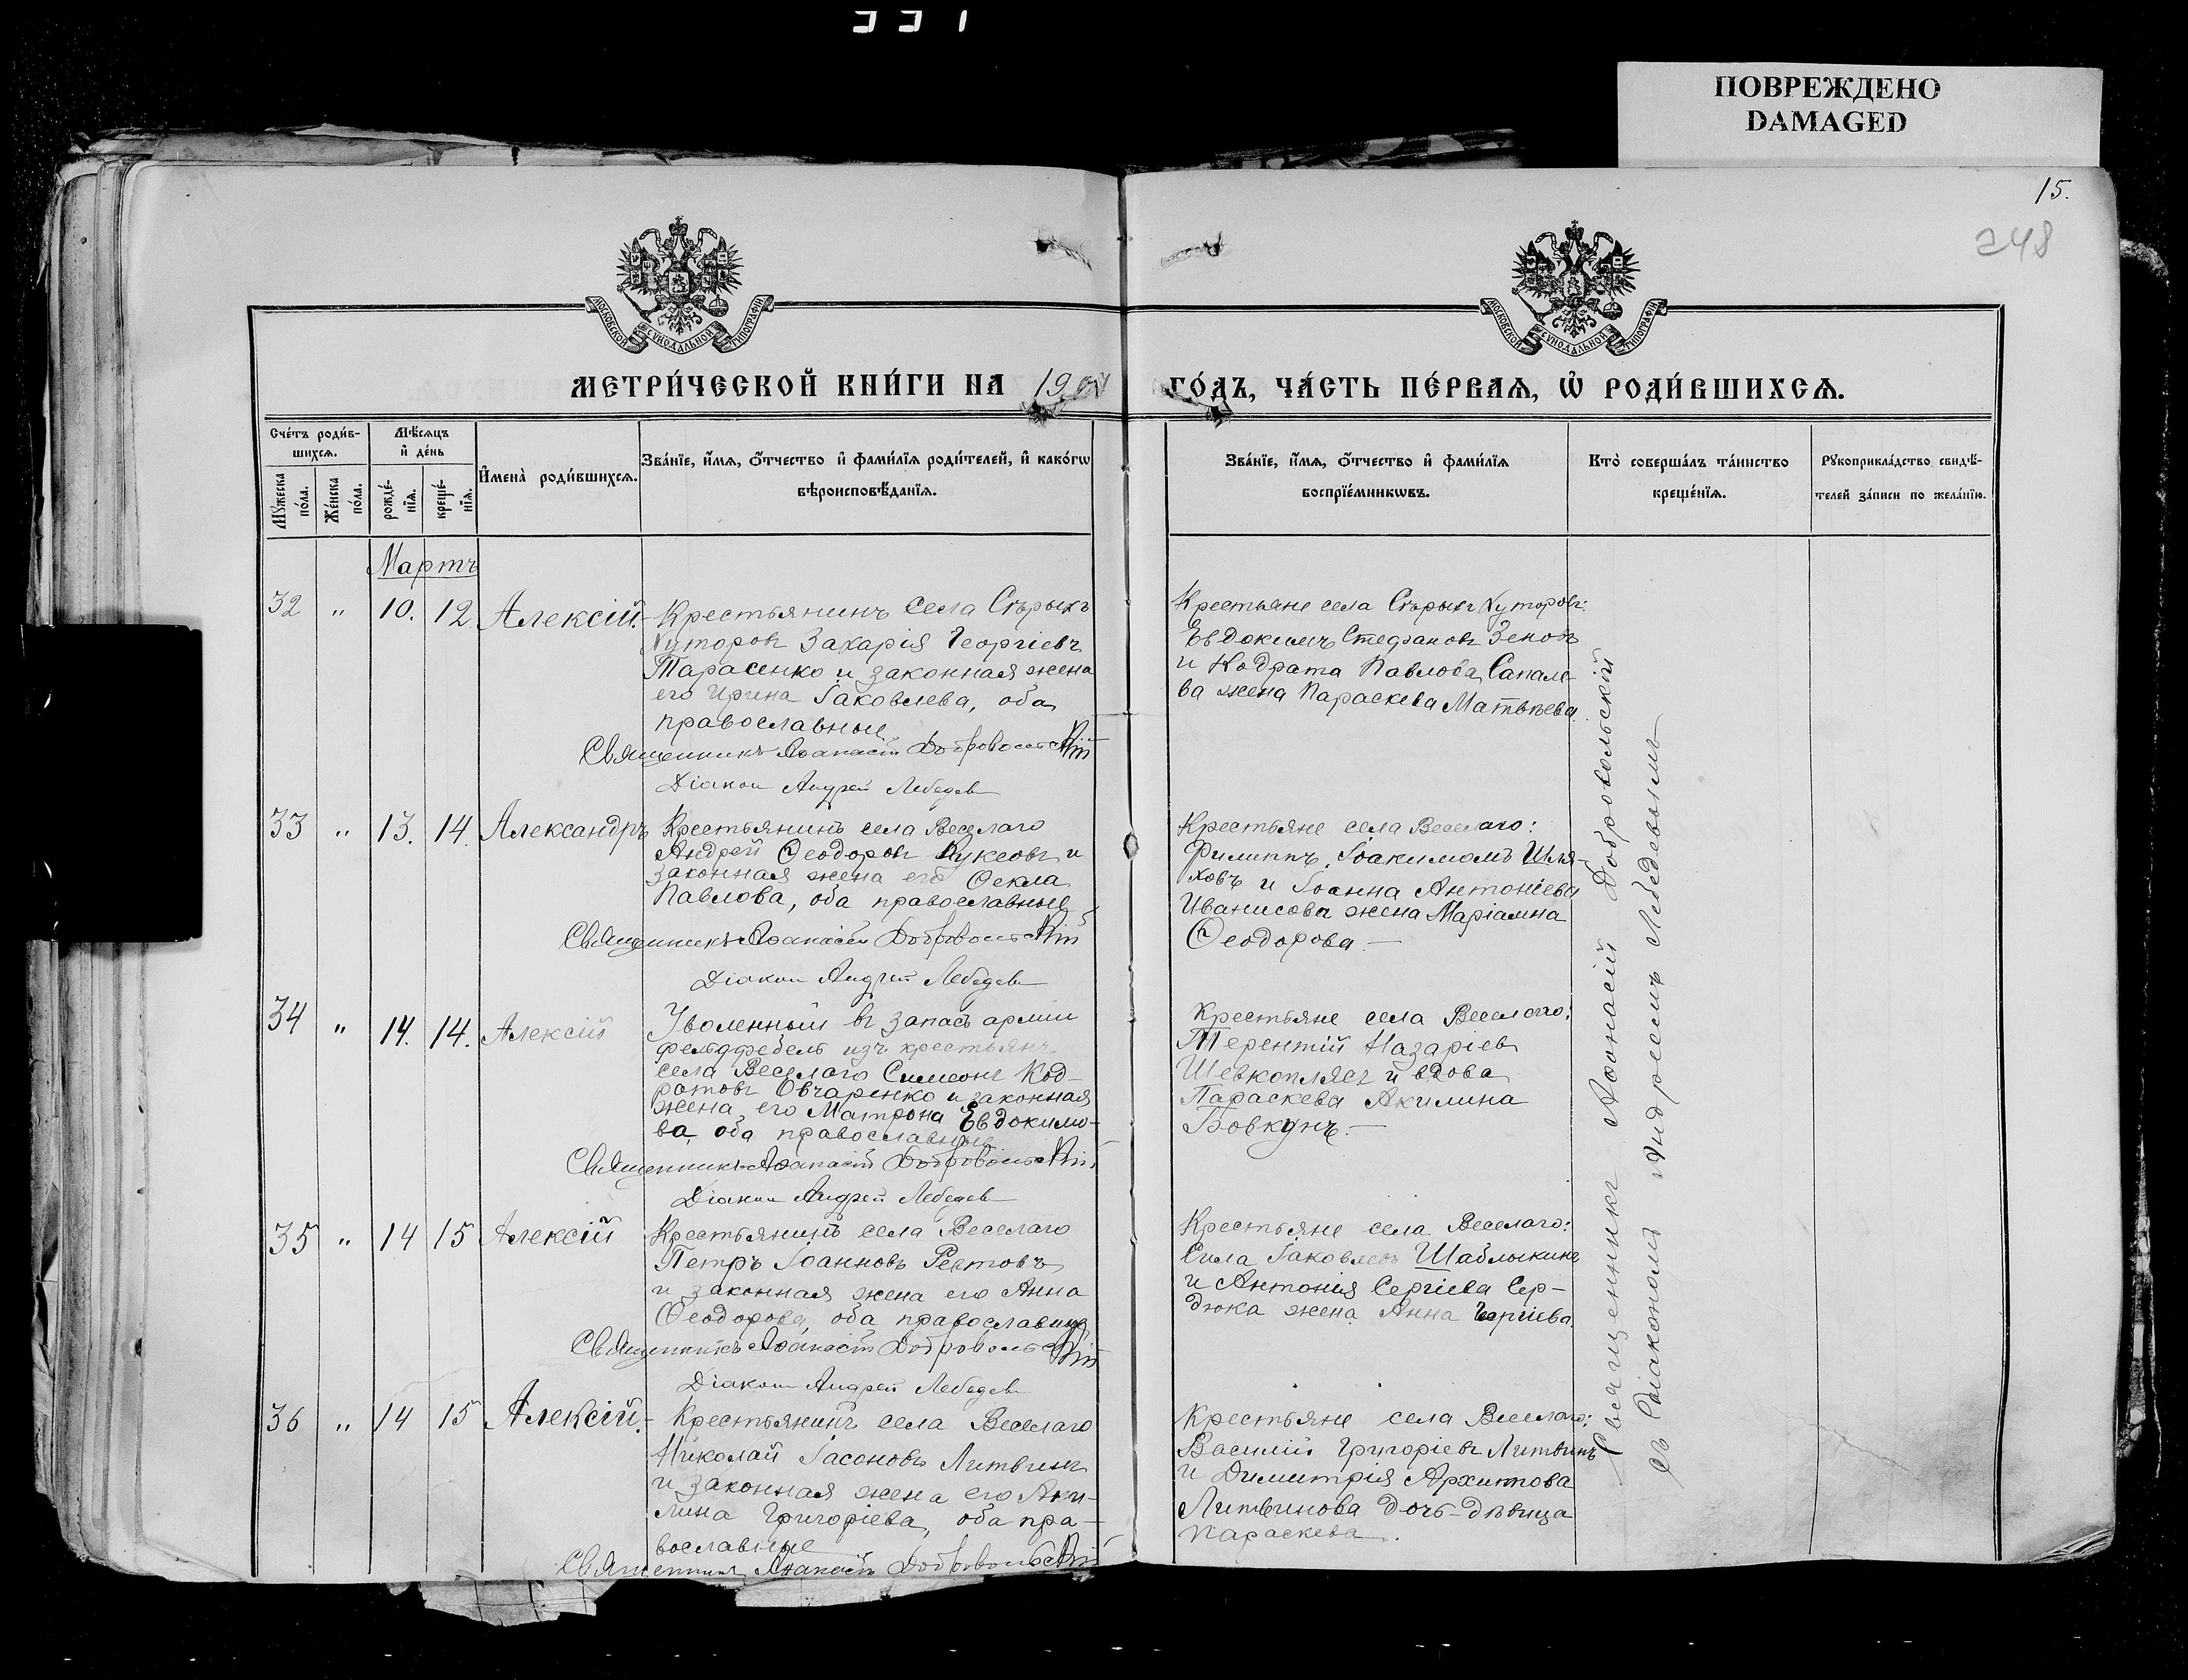 331
ПОВРЕЖДЕНО
DAMAGED
15.
248
МОСКОВСКОЙ СѴНОДАЛЬНОЙ ТИПОГРАФІИ
МОСКОВСКОЙ СѴНОДАЛЬНОЙ ТИПОГРАФІИ
МЕТРИ́ЧЕСКОЙ КНИ́ГИ НА 190
ГО́ДЪ, ЧА́СТЬ ПЕ́РВАЯ, Ѡ҆ РОДИ́ВШИХСЯ.
Сче́тъ роди́в-
шихся.
Мꙋ́жеска по́ла.
Же́нска по́ла.
Мѣ́сяцъ
и҆ де́нь
рожде́-
нїя.
креще́-
нїя.
И҆мена̀ роди́вшихся.
Зва́нїе, и҆́мя, ѻ҆́тчество и҆ фами́лїя роди́телей, и҆ како́гѡ
вѣроисповѣ́данїя.
Зва́нїе, и҆́мя, ѻ҆́тчество и҆ фами́лїя
воспрїе́мникѡвъ.
Кто̀ соверша́лъ та́инство
креще́нїя.
Рꙋкоприкла́дство свидѣ́-
телей за́писи по жела́нїю.
Мартъ
32 " 10. 12 Алексій.
Крестьянинъ села Старыхъ
Хуторовъ Захарія Георгіевъ
Тарасенко и законная жена
его Ирина Іаковлева, оба
православные
Священникъ Аѳанасій Добровольскій
Діаконъ Андрей Лебедевъ
Крестьяне села Старыхъ Хуторовъ:
Евдокимъ Стефановъ Зеновъ
и Кодрата Павлова Сапале-
ва жена Параскева Матвѣева
33 " 13. 14. Александръ
Крестьянинъ села Веселаго
Андрей Ѳеодоровъ и
законная жена его Ѳекла
Павлова, оба православные
Священникъ Аѳанасій Добровольскій
Діаконъ Андрей Лебедевъ
Крестьяне села Веселаго:
Филиппъ Іоакимовъ Шля-
ховъ и Іоанна Антоніева
Иванисова жена Маріамна
Ѳеодорова.—
34 " 14. 14. Алексій
Уволенный въ запасъ арміи
фельдфебель изъ крестьянъ
села Веселаго Симеонъ Код-
ратовъ Овчаренко и законная
жена его Матрона Евдокимо-
ва, оба православные
Священникъ Аѳанасій Добровольскій
Діаконъ Андрей Лебедевъ
Крестьяне села Веселаго:
Терентій Назаріевъ
Шевкоплясъ и вдова
Параскева Акилина
Бовкунъ.—
35 " 14 15 Алексій
Крестьянинъ села Веселаго
Петръ Іоанновъ Рестовъ
и законная жена его Анна
Ѳеодорова, оба православные
Священникъ Аѳанасій Добровольскій
Діаконъ Андрей Лебедевъ
Крестьяне села Веселаго:
Сила Іаковлевъ Шаблыкинъ
и Антонія Сергіева Сер-
дюка жена Анна Георгіева.
36 " 14 15 Алексій.
Крестьянинъ села Веселаго
Николай Іасоновъ Литвинъ
и законная жена его Аки-
лина Григоріева, оба пра-
вославные
Священникъ Аѳанасій Добровольскій
Крестьяне села Веселаго:
Василій Григоріевъ Литвинъ
и Димитрія Архипова
Литвинова дочь-дѣвица
Параскева.
Священникъ Аѳанасій Добровольскій
съ діакономъ Андреемъ Лебедевымъ